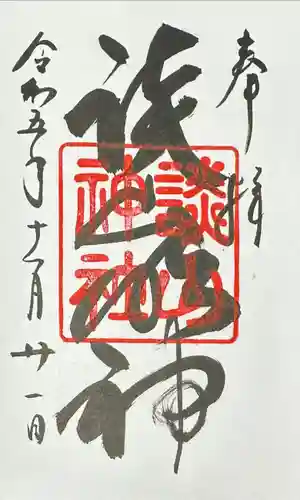 奉拝
談山神
談山神社
令和五年十一月廿一日